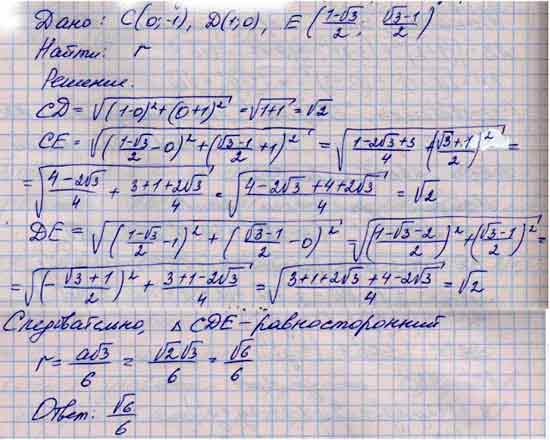 Дано: C(0;-1), D(1;0), E((1-√3)/2; (√3-1)/2)
Найти: r
Решение.
CD = √((1-0)²+(0+1)²) = √(1+1) = √2
CE = √(((1-√3)/2-0)²+((√3-1)/2+1)²) = √((1-2√3+3)/4+((√3+1)/2)²) =
= √((4-2√3)/4 + (3+1+2√3)/4) = √((4-2√3+4+2√3)/4) = √2
DE = √(((1-√3)/2-1)² + ((√3-1)/2-0)²) = √(((1-√3-2)/2)²+((√3-1)/2)²) =
= √((-(√3+1)/2)² + (3+1-2√3)/4) = √((3+1+2√3+4-2√3)/4) = √2
Следовательно, △ CDE - равносторонний
r = a√3/6 = √2√3/6 = √6/6
Ответ: √6/6